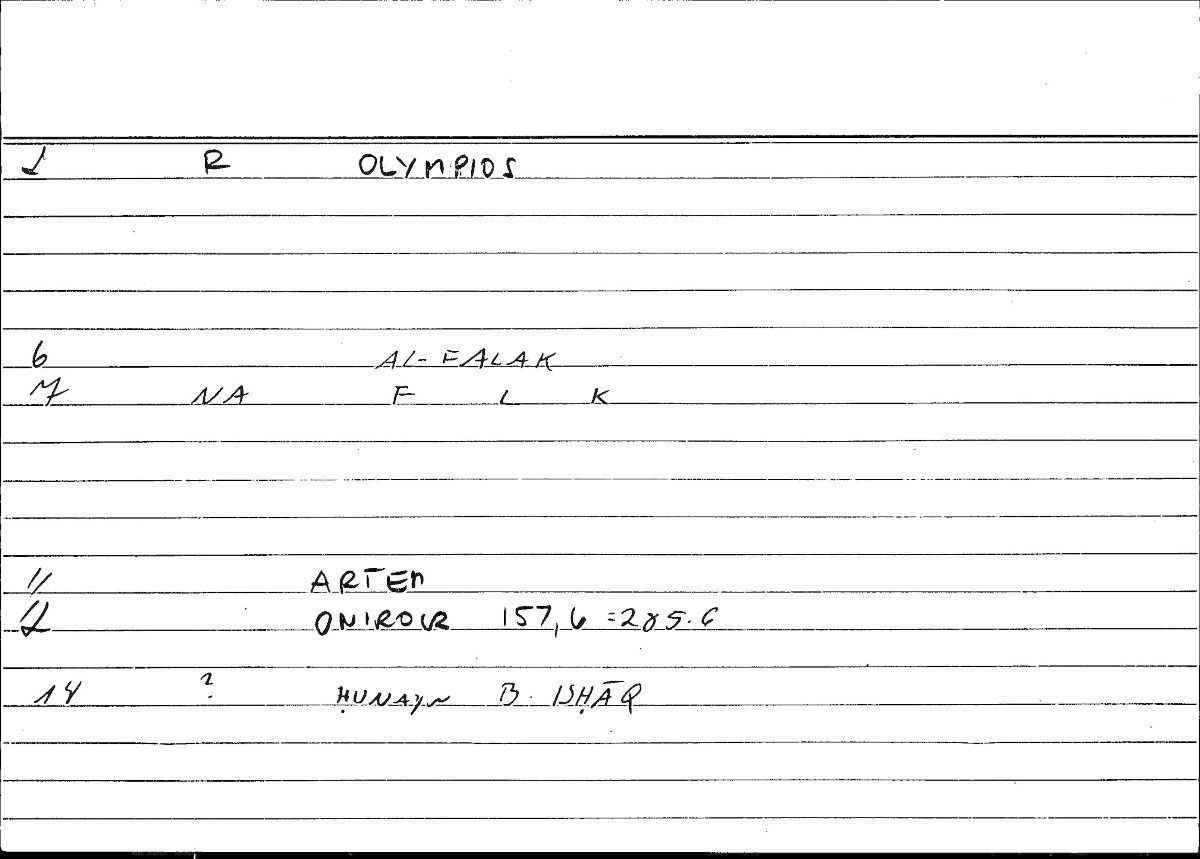 1 R OLYMPIOS
6 AL-FALAK
7 NA F L K
11 ARTEM
12 ONIROCR 157,6 =285.6
14 ? ḤUNAYN B. ISḤĀQ